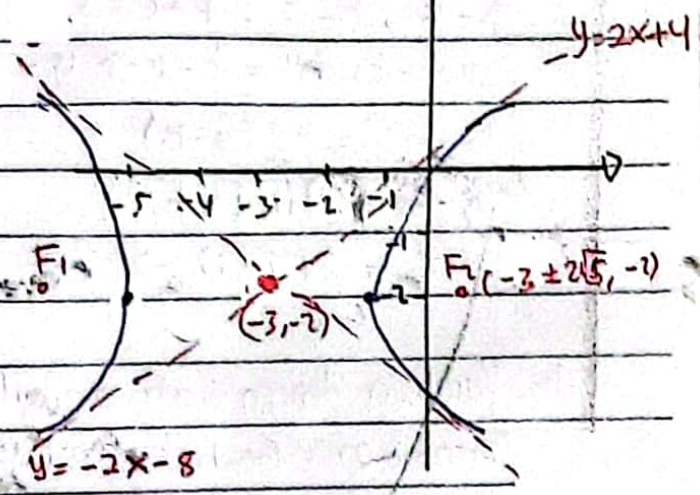 y=2x+4
-5 -4 -3 -2 -1
-1
F1
F2 (-3 ± 2√5, -2)
-2
(-3,-2)
y = -2x - 8